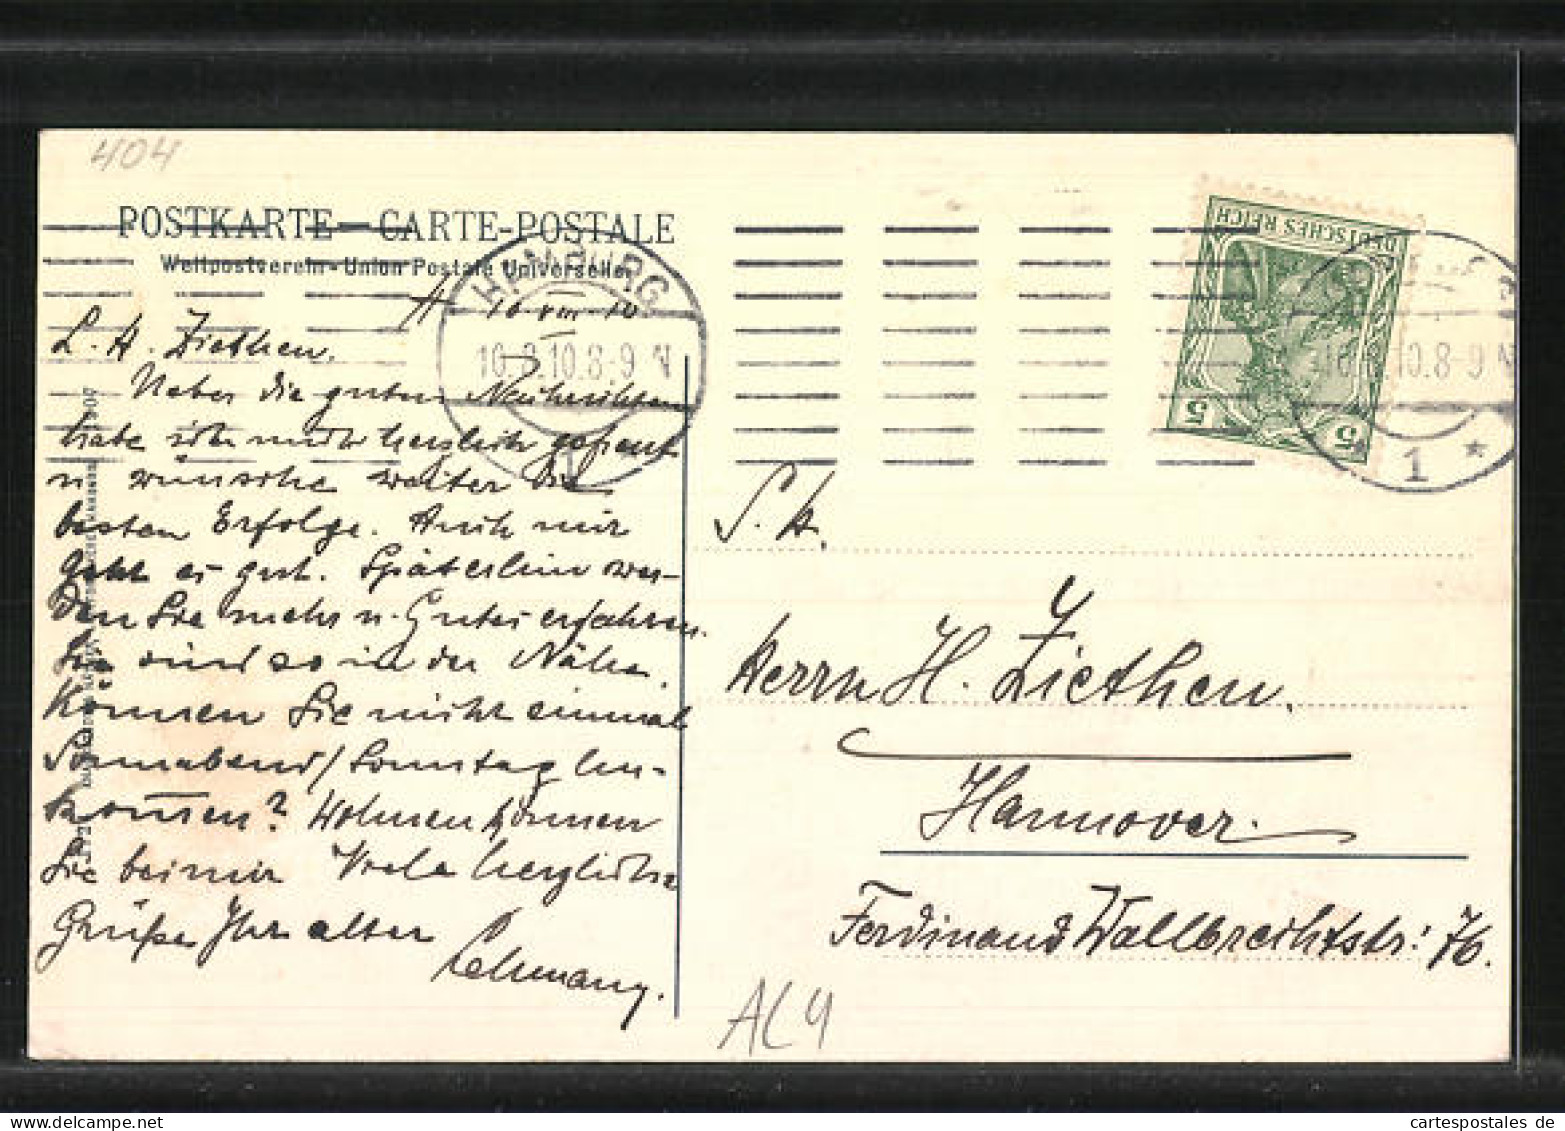 404
POSTKARTE — CARTE-POSTALE
Weltpostverein - Union Postale Universelle
HAMBURG
10.8.10.8-9 N
1
H 10 VIII 10
L. H. Ziethen.
Ueber die guten Nachrichten
habe ich mich herzlich gefreut
u wünsche weiter die
besten Erfolge. Auch mir
geht es gut. Späterhin wer-
den Sie mehr u. Gutes erfahren.
Sie sind so in der Nähe.
Können Sie nicht einmal
Sonnabend/Sonntag her-
kommen? Wohnen können
Sie bei mir Viele herzliche
Grüße Ihr alter
DEUTSCHES REICH
5 5
10.8.10.8-9 N
1 *
S. H.
Herrn H. Ziethen.
Hannover.
Ferdinand Wallbrechtstr: 76.
AL4
cartespostales de